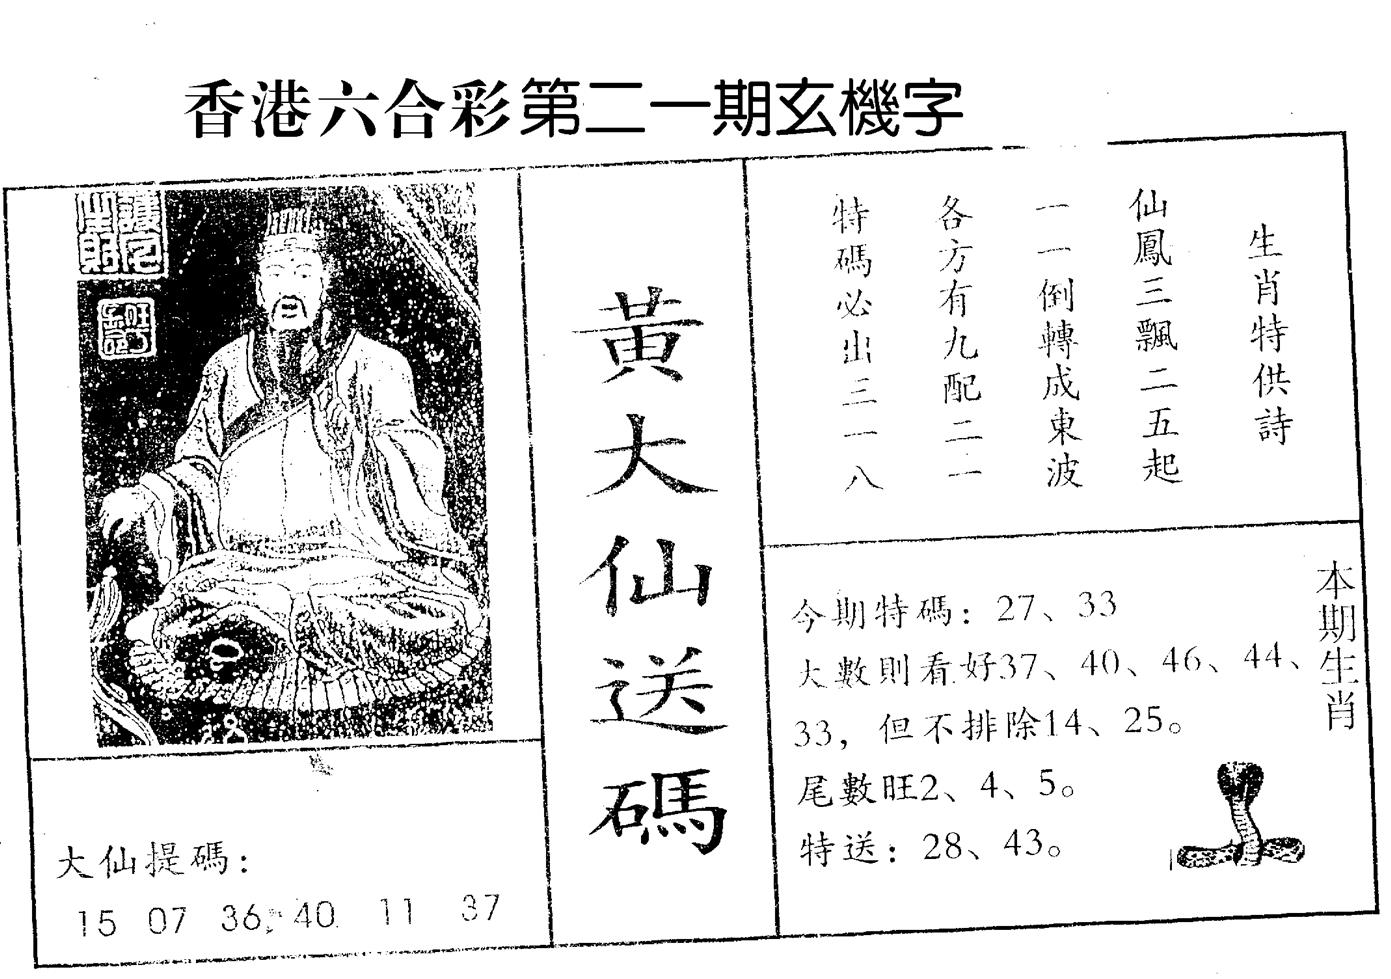 香港六合彩第二一期玄機字
黃大仙送碼
生肖特供詩
仙鳳三飄二五起
一一倒轉成東波
各方有九配二一
特碼必出三一八
本期生肖
今期特碼：27、33
大數則看好37、40、46、44、
33，但不排除14、25。
尾數旺2、4、5。
特送：28、43。
大仙提碼：
15 07 36 40 11 37